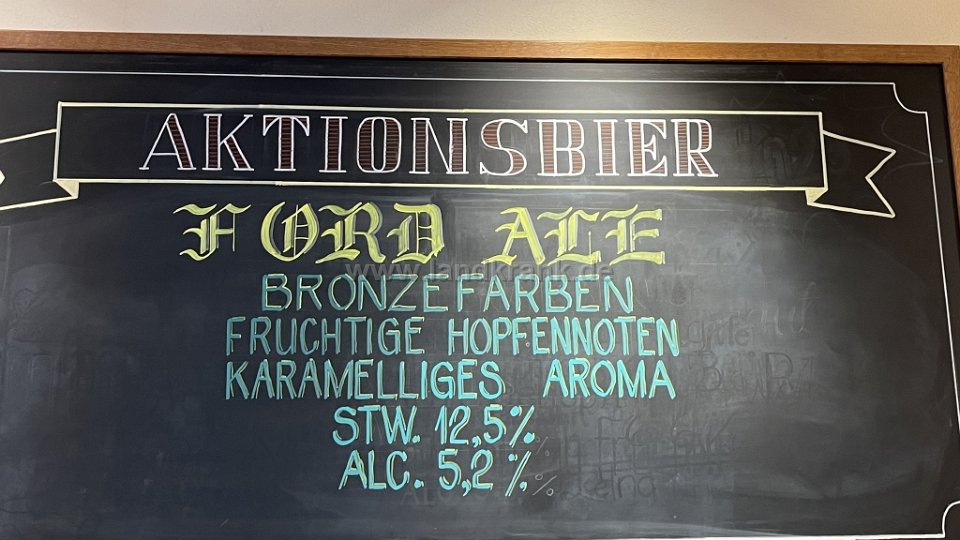 AKTIONSBIER
FORD ALE
www.landkrank.de
BRONZEFARBEN
FRUCHTIGE HOPFENNOTEN
KARAMELLIGES AROMA
STW. 12,5%
ALC. 5,2%